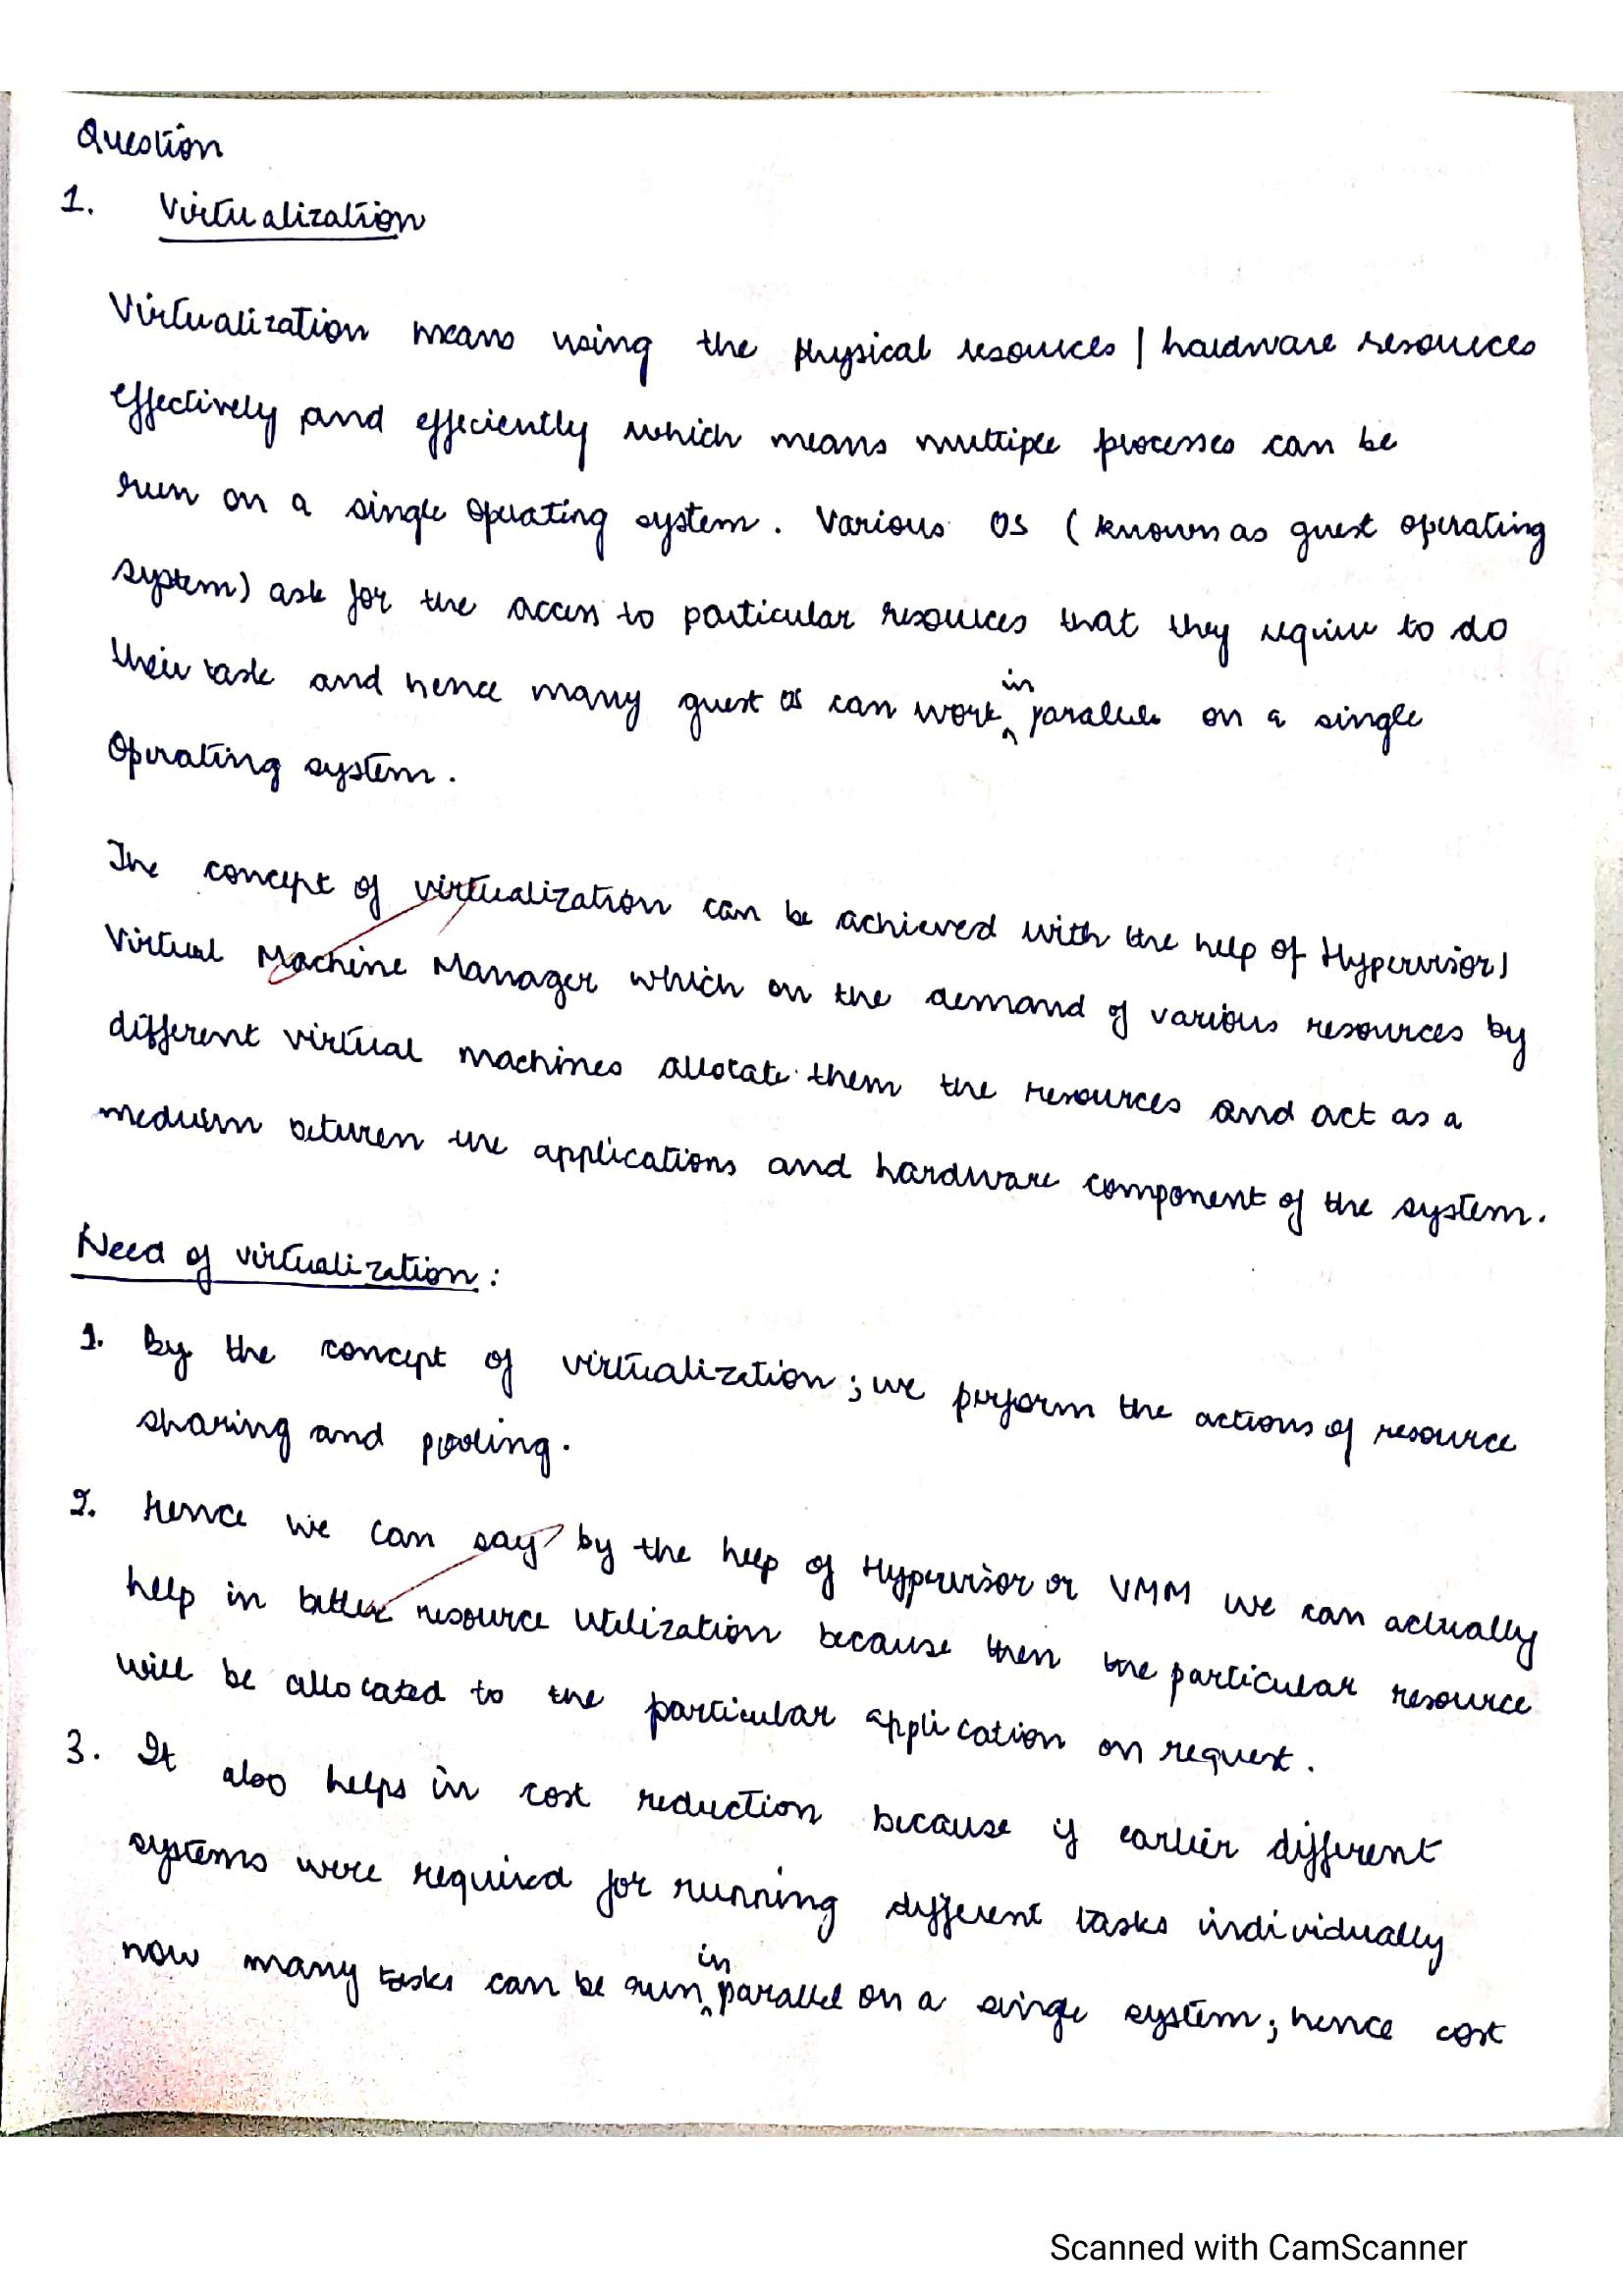 Question
1. Virtualization
Virtualization means using the physical resources / hardware resources
effectively and effeciently which means multiple processes can be
run on a single operating system. Various OS (known as guest operating
system) ask for the access to particular resources that they require to do
their task and hence many guest OS can work in parallel on a single
Operating system.
The concept of virtualization can be achieved with the help of Hypervisor/
Virtual Machine Manager which on the demand of various resources by
different virtual machines allocate them the resources and act as a
medium between the applications and hardware component of the system.
Need of virtualization :
1. By the concept of virtualization ; we perform the actions of resource
sharing and pooling.
2. Hence we can say by the help of Hypervisor or VMM we can actually
help in better resource utilization because then the particular resource
will be allocated to the particular application on request.
3. It also helps in cost reduction because if earlier different
systems were required for running different tasks individually
now many tasks can be run in parallel on a single system ; hence cost
Scanned with CamScanner